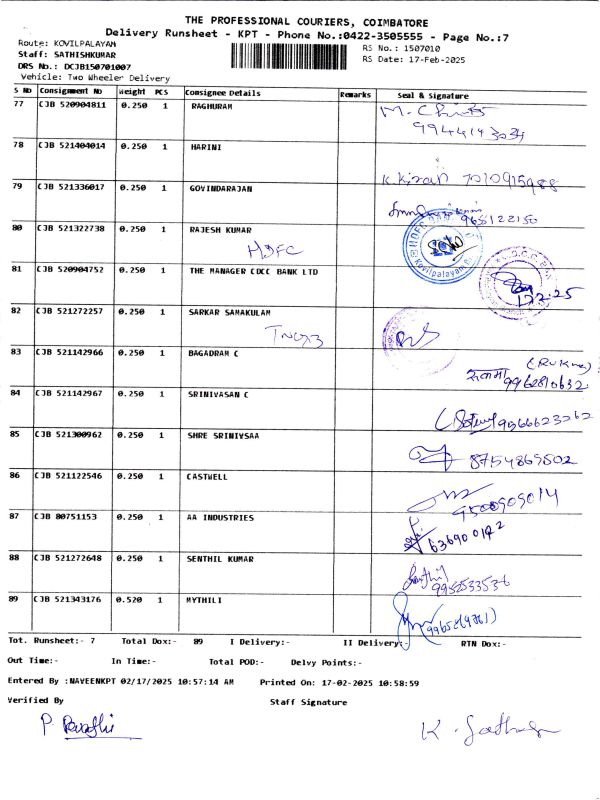 THE PROFESSIONAL COURIERS, COIMBATORE
Delivery Runsheet - KPT - Phone No.:0422-3505555 - Page No.:7
Route: KOVILPALAYAM
RS No.: 1507010
Staff: SATHISHKUMAR
RS Date: 17-Feb-2025
DRS No.: DCJB150701007
Vehicle: Two Wheeler Delivery
S No Consignment No Weight PCS Consignee Details Remarks Seal & Signature
77 CJB 520904811 0.250 1 RAGHURAM
78 CJB 521404014 0.250 1 HARINI
K. Kiran 7010915988
79 CJB 521336017 0.250 1 GOVINDARAJAN
9655122150
80 CJB 521322738 0.250 1 RAJESH KUMAR
HDFC
81 CJB 520904752 0.250 1 THE MANAGER CDCC BANK LTD
17.2.25
82 CJB 521272257 0.250 1 SARKAR SAMAKULAM
83 CJB 521142966 0.250 1 BAGADRAM C
9962810632
84 CJB 521142967 0.250 1 SRINIVASAN C
9566623262
85 CJB 521300962 0.250 1 SHRE SRINIVSAA
8754869502
86 CJB 521122546 0.250 1 CASTWELL
9500909014
87 CJB 80751153 0.250 1 AA INDUSTRIES
88 CJB 521272648 0.250 1 SENTHIL KUMAR
9952533536
89 CJB 521343176 0.520 1 MYTHILI
Tot. Runsheet:- 7 Total Dox:- 89 I Delivery:- II Delivery:- RTN Dox:-
Out Time:- In Time:- Total POD:- Delvy Points:-
Entered By :NAVEENKPT 02/17/2025 10:57:14 AM Printed On: 17-02-2025 10:58:59
Verified By Staff Signature